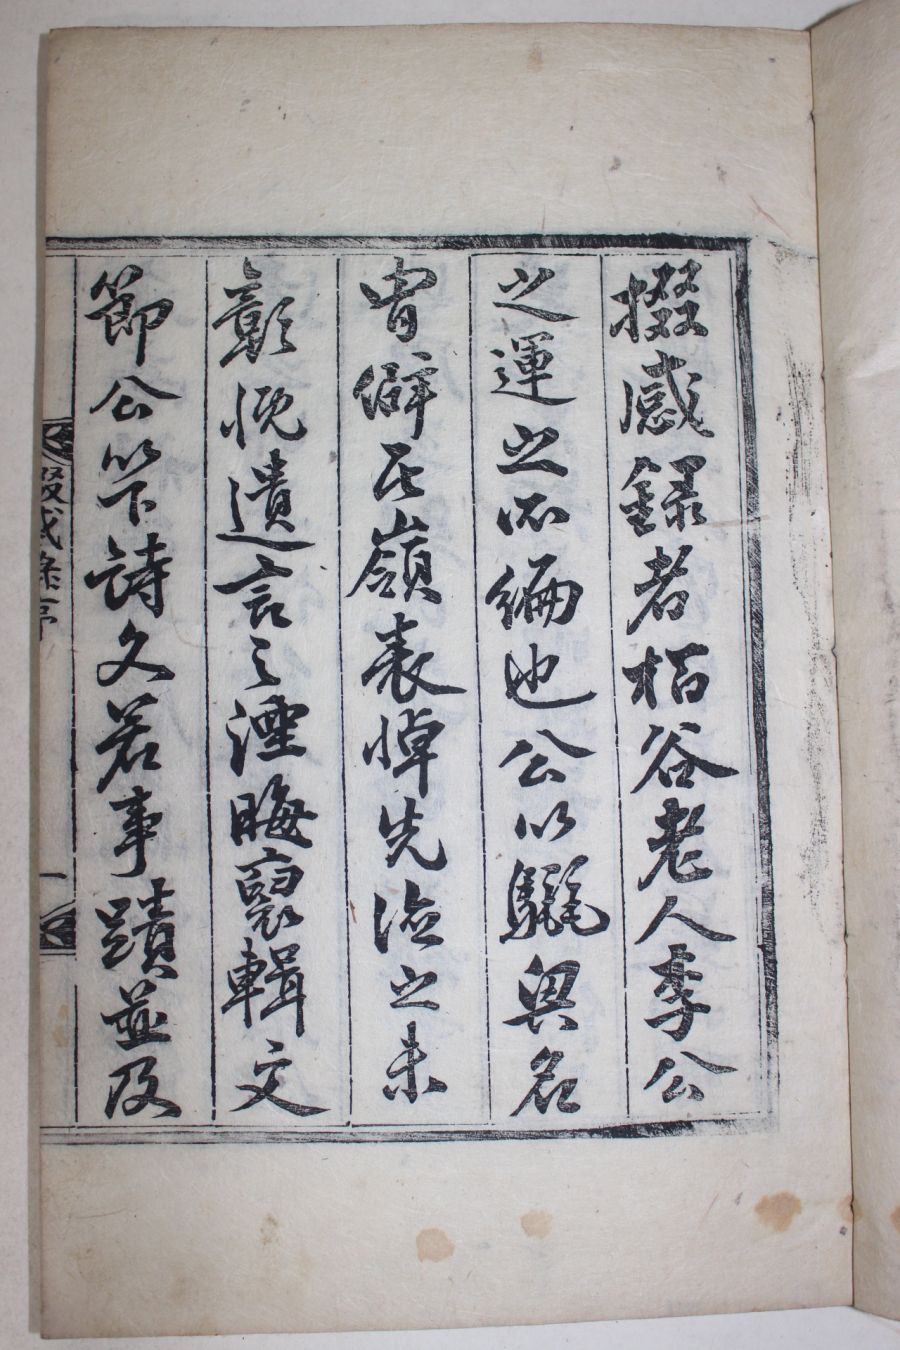 掇感録者栢谷老人李公
之運之所編也公以驪興名
胄僻居嶺表悼先德之未
彰慨遺言之湮晦裒輯文
節公以下詩文若事蹟並及
掇感錄序
一